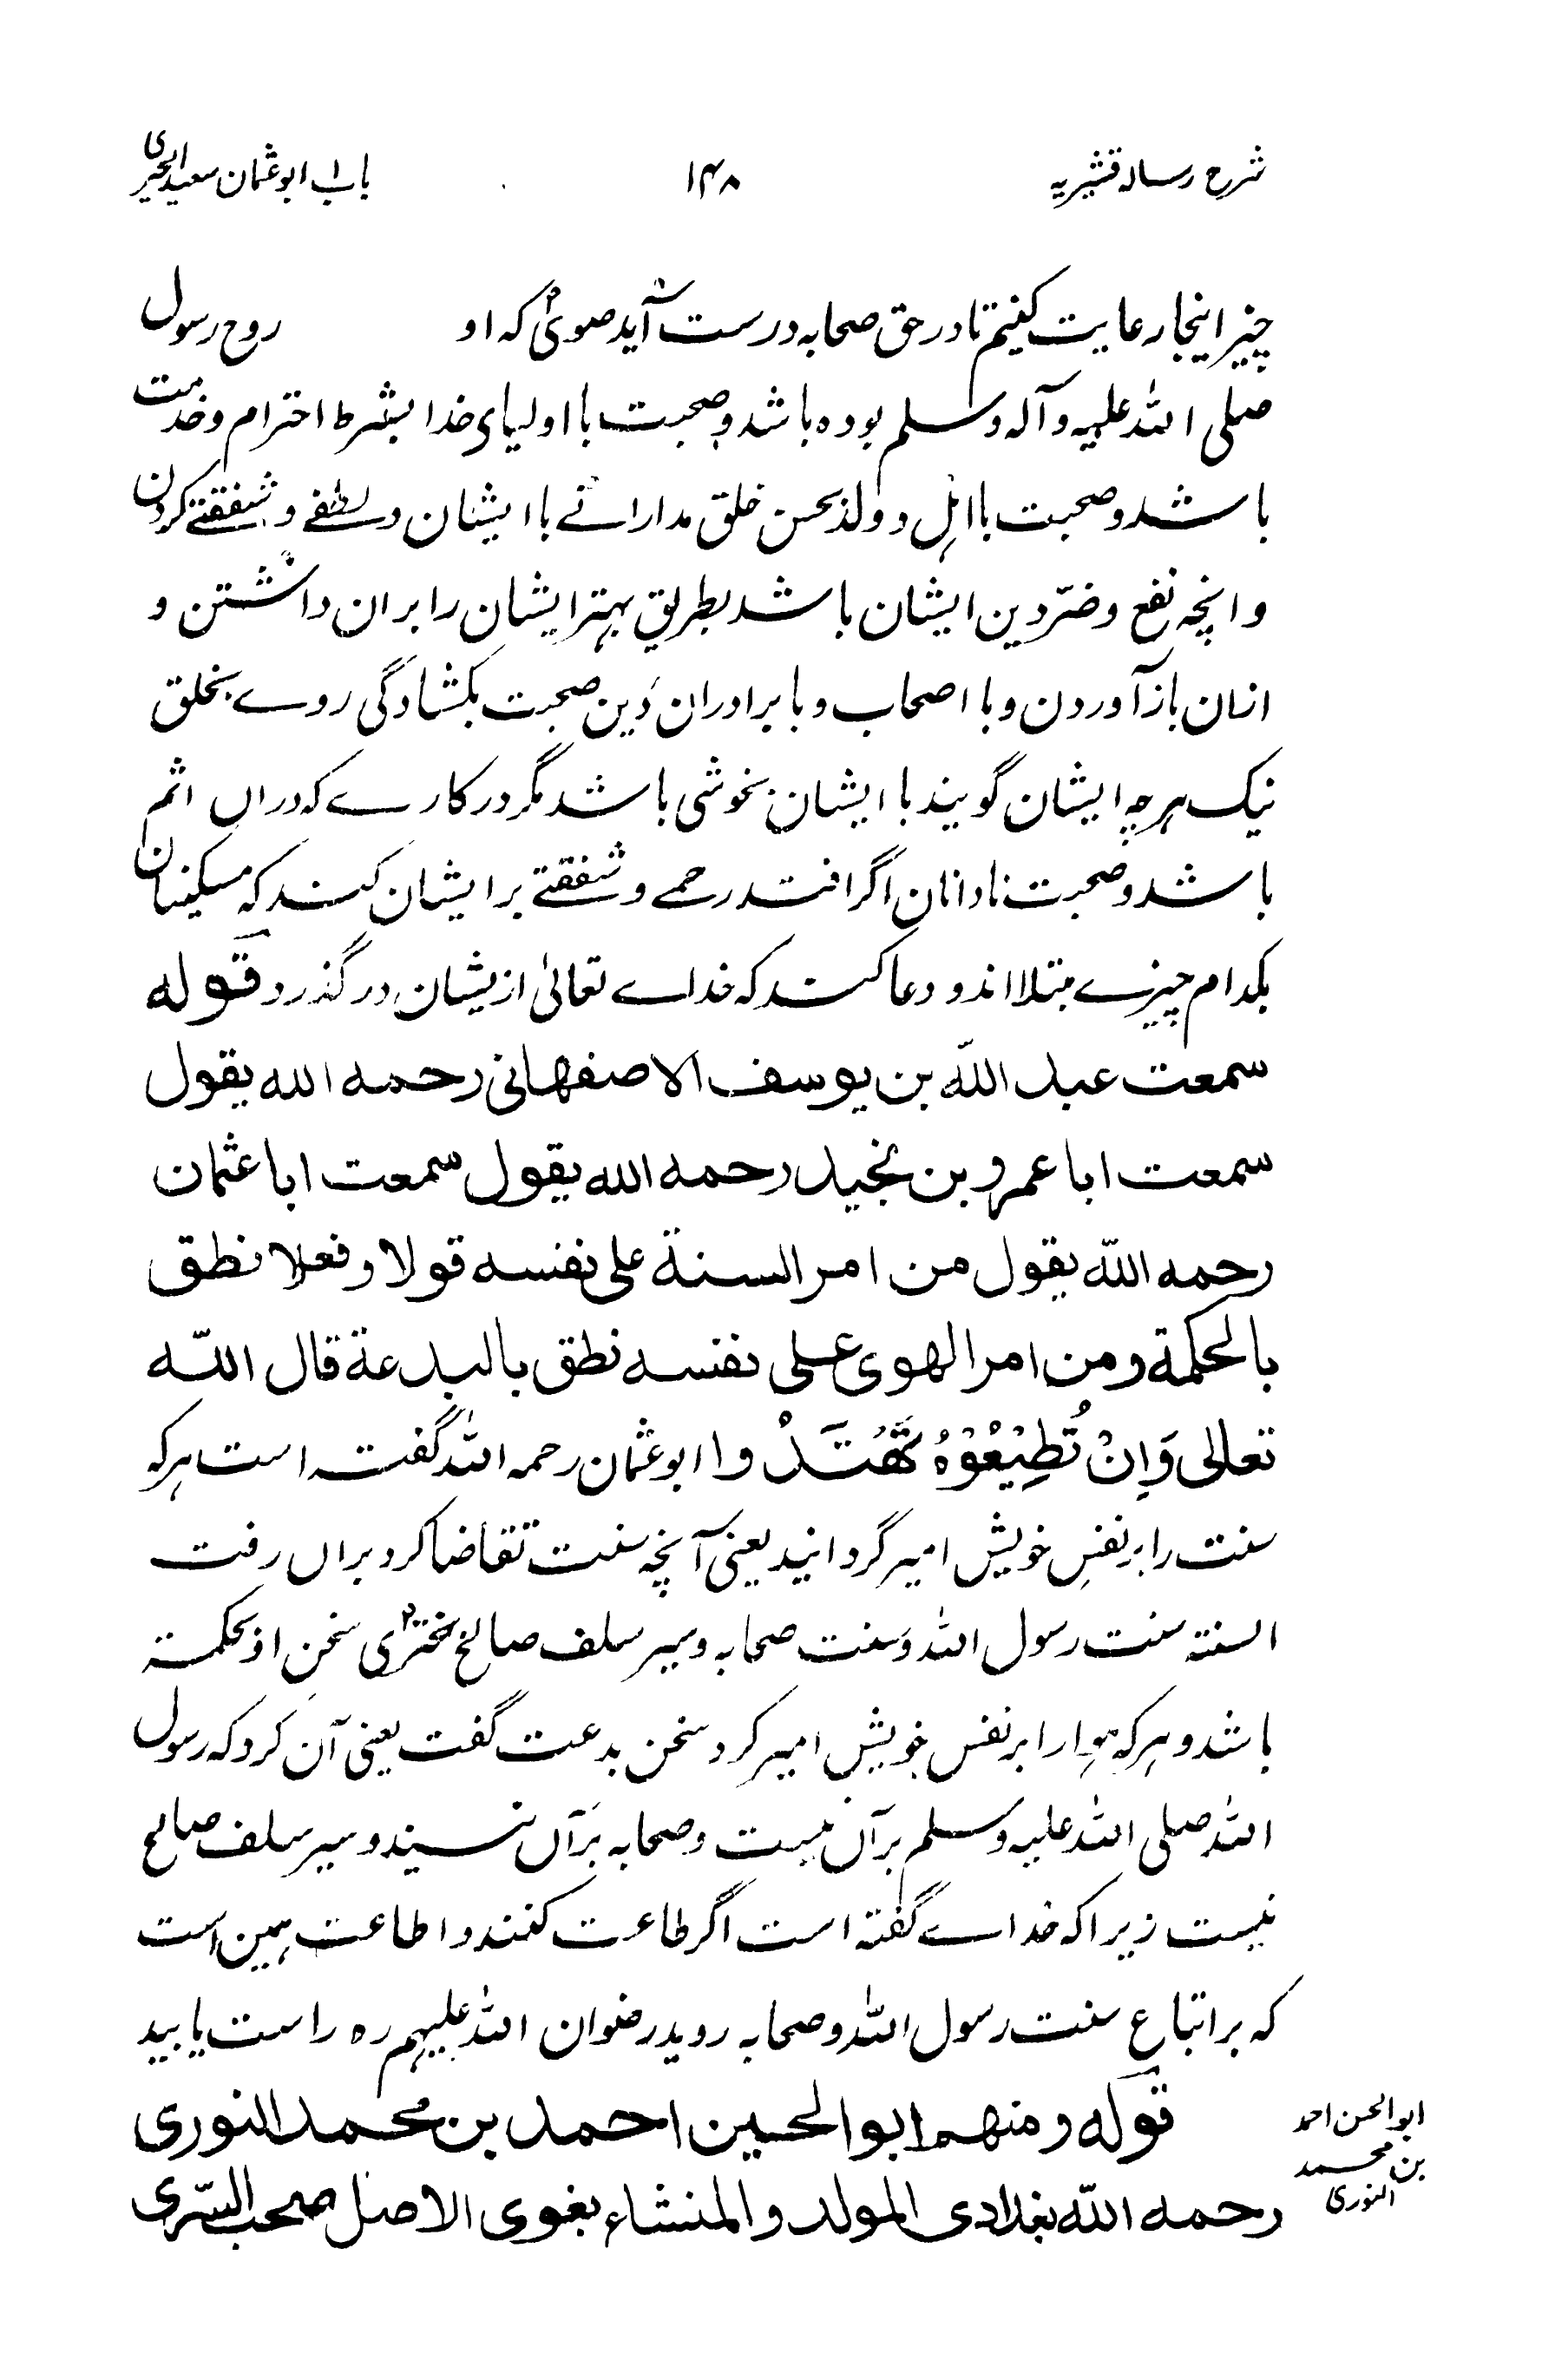 شرح رسالہ قشیریہ
۱۴۸
باب ابو عثمان سعید الحیری
چیز اینجا رعایت کنیم تا در حق صحابہ درست آید صوفی کہ او روح رسول
صلی اللہ علیہ و آلہ و سلم بودہ باشد و صحبت با اولیای خدا بشرط احترام و خدمت
باشد و صحبت با اہل و ولد بحسن خلق مداراتے با ایشان و لطفے و شفقتے کردن
و انچہ نفع و ضرّ دین ایشان باشد بطریق بہتر ایشان را بران داشتن و
ازان باز آوردن و با اصحاب و با برادران دین صحبت بکشادگی روے بخلق
نیک ہرچہ ایشان گویند با ایشان بخوشی باشد مگر در کارے کہ دراں اثم
باشد و صحبت نادانان اگر افتد رحمے و شفقتے بر ایشان کنند کہ مسکینان
بکدام چیزے مبتلا اند و دعا کنند کہ خداے تعالیٰ از یشان در گذرد قوله
سمعت عبد اللّه بن يوسف الاصفهانى رحمه الله يقول
سمعت ابا عمرو بن نجيد رحمه الله يقول سمعت ابا عثمان
رحمه اللّه يقول من امر السنة على نفسه قولا و فعلا نطق
بالحكمة و من امر الهوى على نفسه نطق بالبدعة قال اللّه
تعالى وَاِنْ تُطِيْعُوْهُ تَهْتَدُوْا ابو عثمان رحمہ اللہ گفتہ است ہر کہ
سنت را بر نفس خویش امیر گردانید یعنی آنچہ سنت تقاضا کرد براں رفت
السنتہ سنت رسول اللہ و سنت صحابہ و سیر سلف صالح سخن او حکمتہ
باشد و ہر کہ ہوا را بر نفس خویش امیر کرد سخن بدعت گفت یعنی آن کرد کہ رسول
اللہ صلی اللہ علیہ و سلم بر آن نیست و صحابہ بر آں نیند و سیر سلف صالح
نیست زیرا کہ خداے گفتہ است اگر طاعت کنند و اطاعت ہمین است
کہ بر اتباع سنت رسول اللہ و صحابہ روید رضوان اللہ علیہم رہ راست یابید
قوله و منهم ابو الحسين احمد بن محمد النورى
رحمه اللّه بغدادى المولد و المنشاء بغوى الاصل صحب السّرى
ابو الحسن احمد
بن محمد
النوری